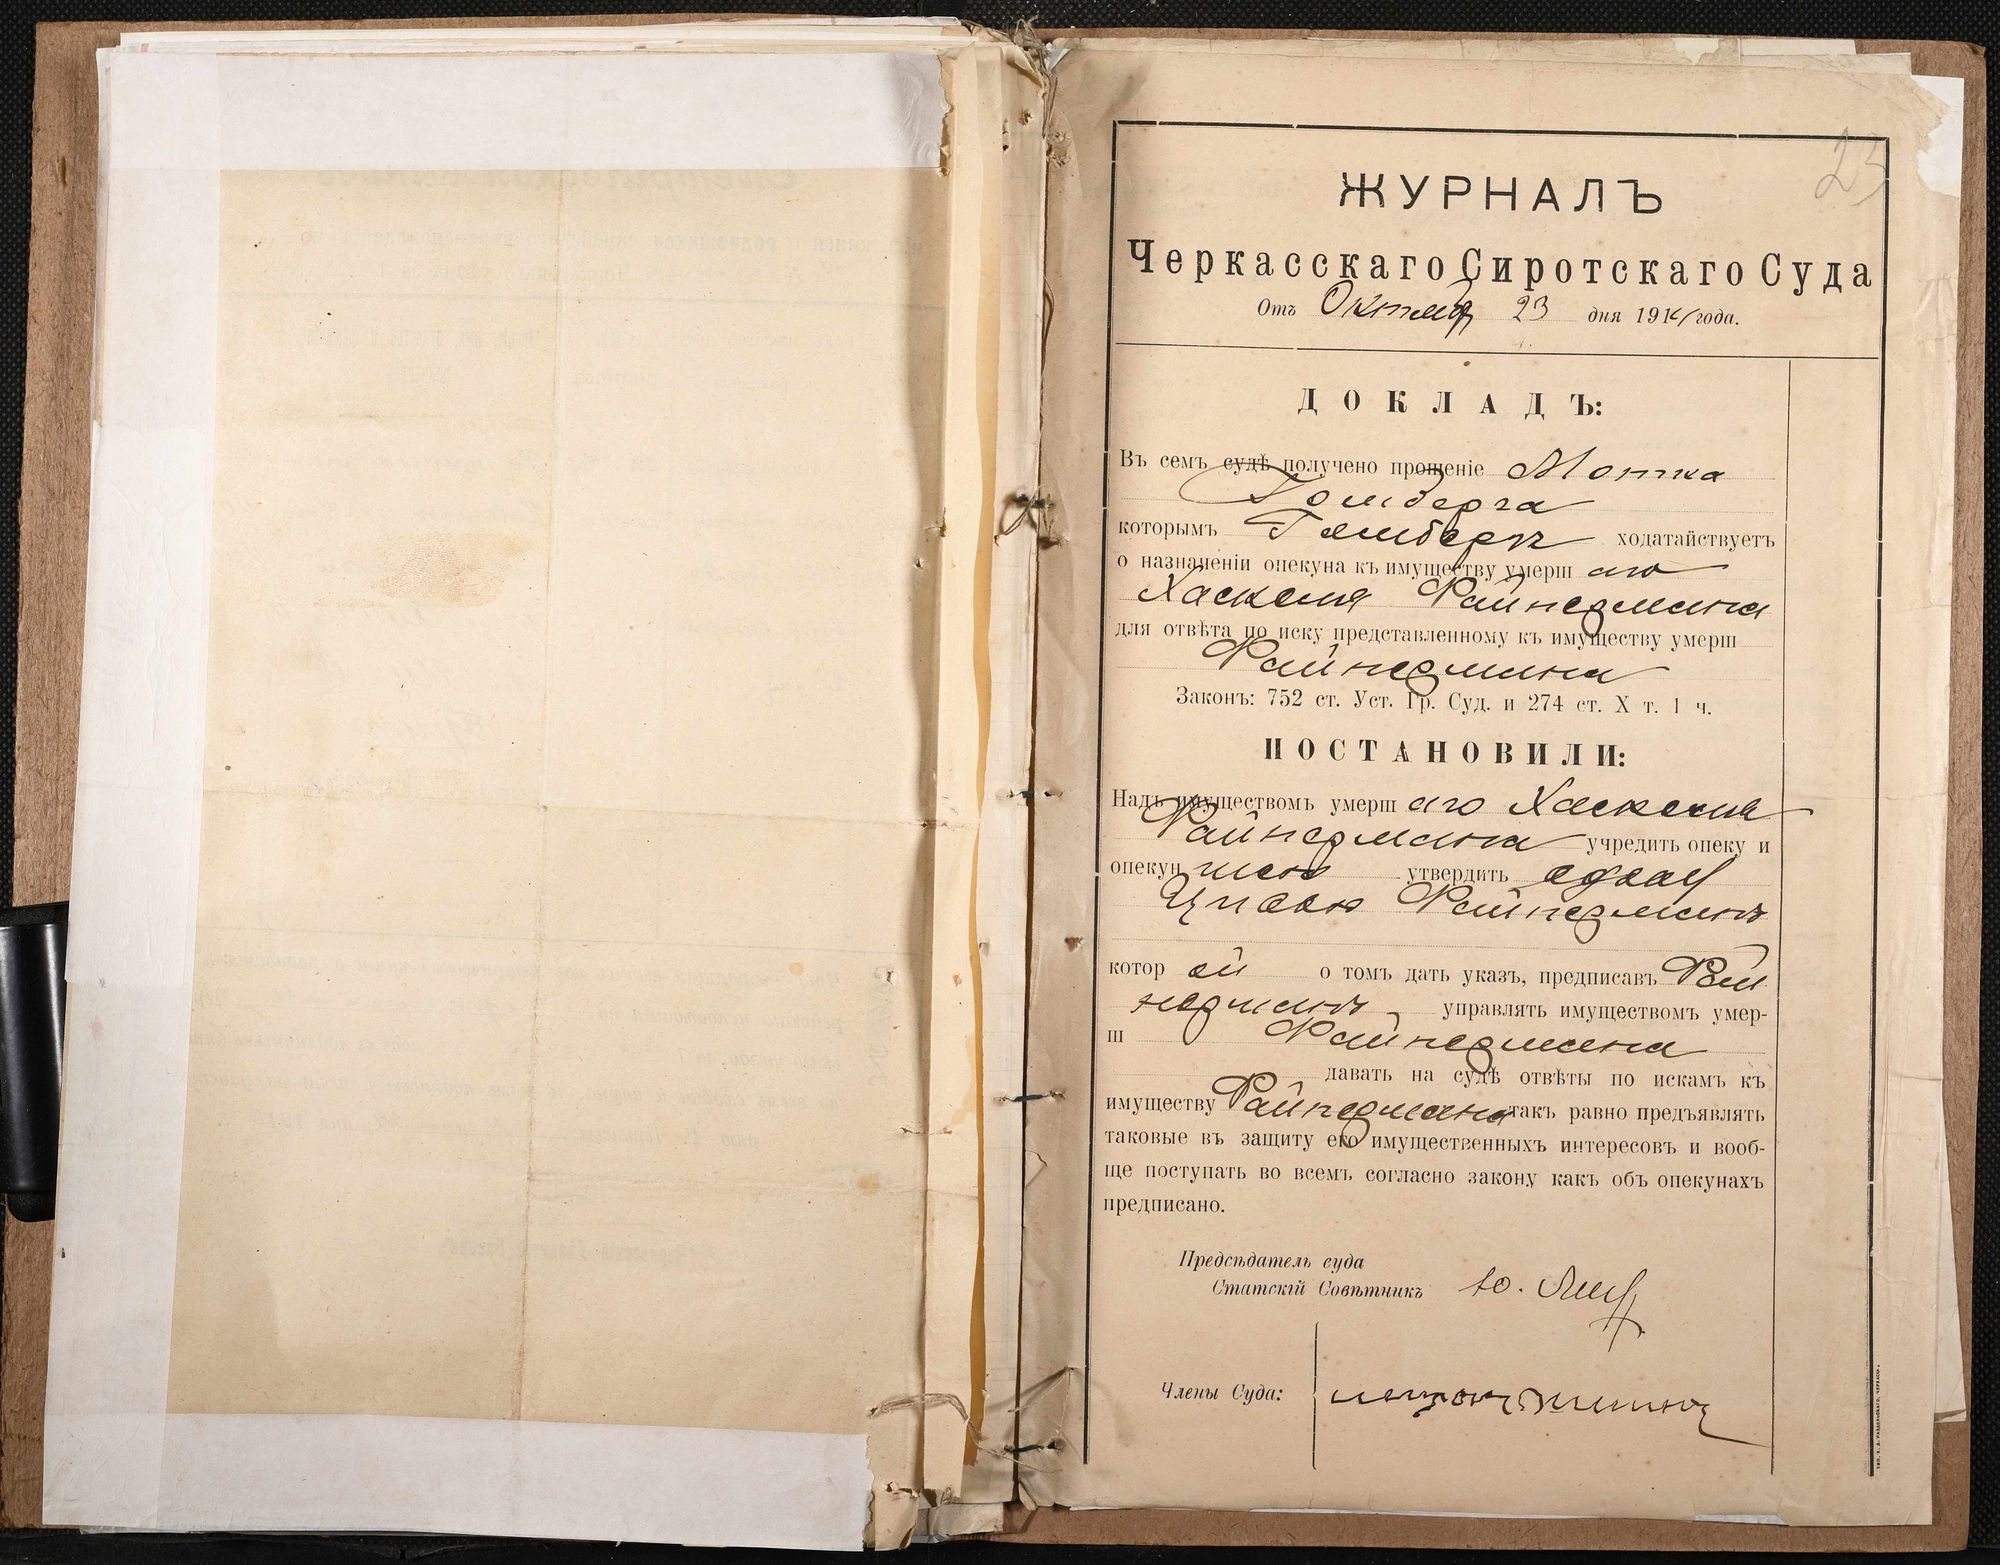 23
ЖУРНАЛЪ
Черкасскаго Сиротскаго Суда
Отъ Октябр 23 дня 1914 года.
ДОКЛАДЪ:
Въ семъ судѣ получено прошеніе Мотка
Гомберга
которымъ Гомбергъ ходатайствуетъ
о назначеніи опекуна къ имуществу умерш аго
Хаскеля Файнермана
для отвѣта по иску представленному къ имуществу умерш
Файнермана
Законъ: 752 ст. Уст. Гр. Суд. и 274 ст. X т. 1 ч.
ПОСТАНОВИЛИ:
Надъ имуществомъ умерш аго Хаскеля
Файнермана учредить опеку и
опекун шею утвердить вдову
Файнерманъ
котор ой о томъ дать указъ, предписавъ Фай
нерманъ управлять имуществомъ умер-
ш Файнермана
давать на судѣ отвѣты по искамъ къ
имуществу Файнермана такъ равно предъявлять
таковые въ защиту его имущественныхъ интересовъ и вооб-
ще поступать во всемъ согласно закону какъ объ опекунахъ
предписано.
Предсѣдатель суда
Статскій Совѣтникъ Ю.
Члены Суда: